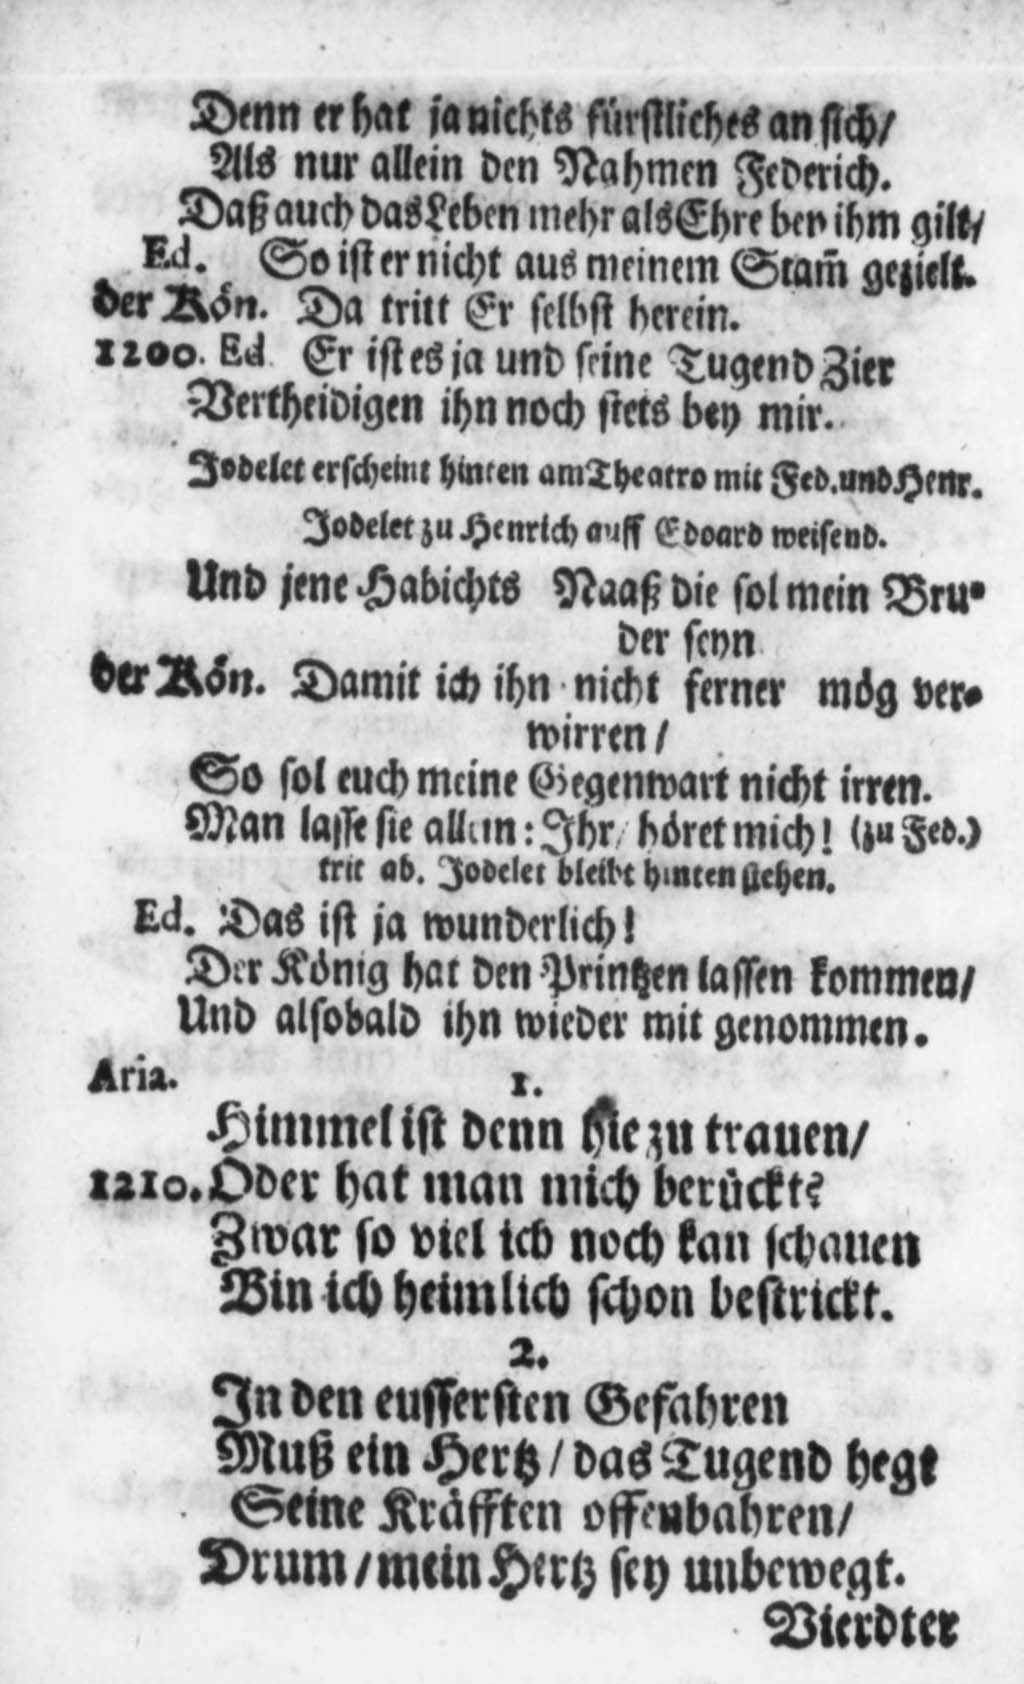 Denn er hat ja nichts fürstliches an sich/
Als nur allein den Nahmen Federich.
Daß auch das Leben mehr als Ehre bey ihm gilt/
Ed. So ist er nicht aus meinem Stam̃ gezielt.
der Kön. Da tritt Er selbst herein.
1200. Ed. Er ist es ja und seine Tugend Zier
Vertheidigen ihn noch stets bey mir.
Jodelet erscheint hinten am Theatro mit Fed. und Henr.
Jodelet zu Henrich auff Edoard weisend.
Und jene Habichts Naaß die sol mein Bru-
der seyn
der Kön. Damit ich ihn nicht ferner mög ver-
wirren/
So sol euch meine Gegenwart nicht irren.
Man lasse sie allein: Ihr/ höret mich! (zu Fed.)
trit ab. Jodelet bleibt hinten stehen.
Ed. Das ist ja wunderlich!
Der König hat den Printzen lassen kommen/
Und alsobald ihn wieder mit genommen.
Aria. 1.
Himmel ist denn hie zu trauen/
1210. Oder hat man mich berückt?
Zwar so viel ich noch kan schauen
Bin ich heimlich schon bestrickt.
2.
In den eussersten Gefahren
Muß ein Hertz/ das Tugend hegt
Seine Kräfften offenbahren/
Drum/ mein Hertz sey unbewegt.
Vierdter